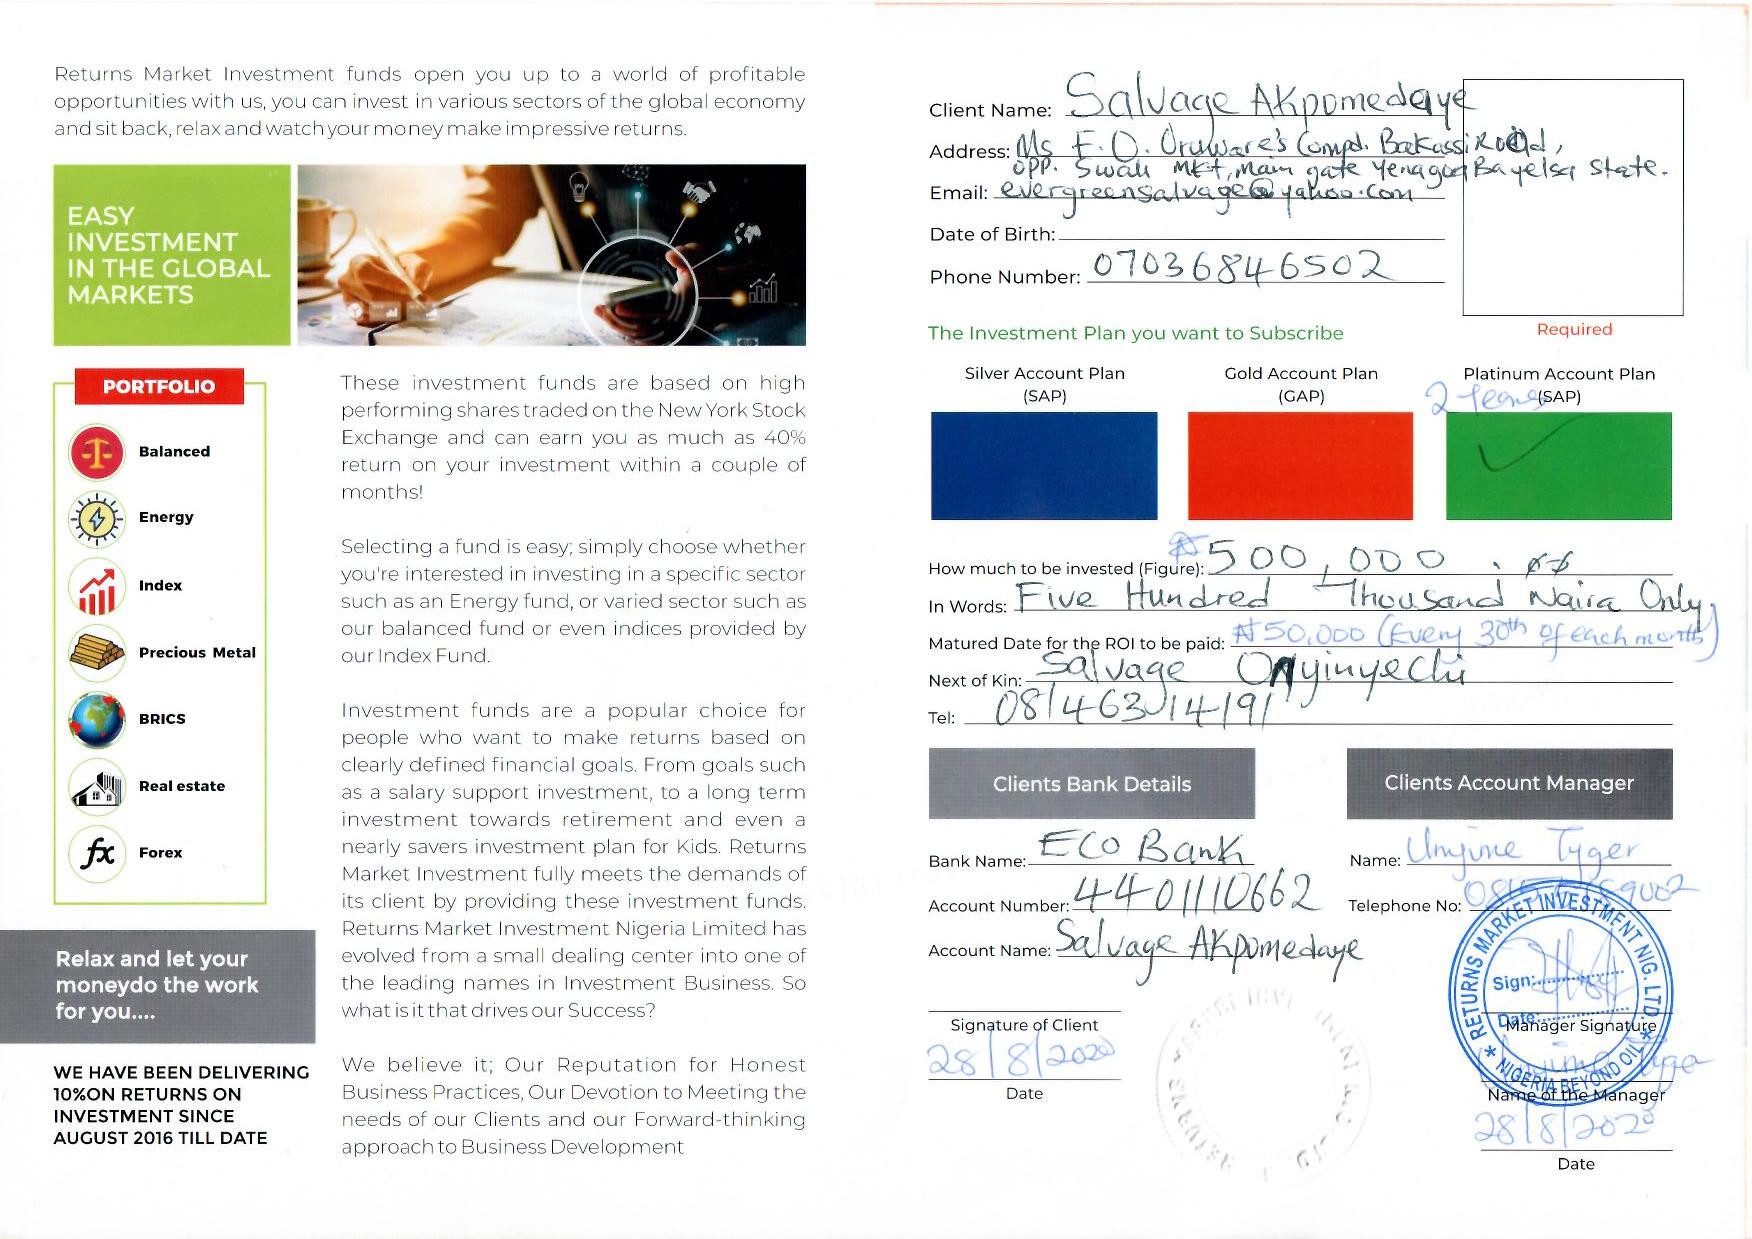 Returns Market Investment funds open you up to a world of profitable
opportunities with us, you can invest in various sectors of the global economy
and sit back, relax and watch your money make impressive returns.
EASY
INVESTMENT
IN THE GLOBAL
MARKETS
PORTFOLIO
Balanced
Energy
Index
Precious Metal
BRICS
Real estate
fx Forex
Relax and let your
moneydo the work
for you....
WE HAVE BEEN DELIVERING
10%ON RETURNS ON
INVESTMENT SINCE
AUGUST 2016 TILL DATE
These investment funds are based on high
performing shares traded on the New York Stock
Exchange and can earn you as much as 40%
return on your investment within a couple of
months!
Selecting a fund is easy; simply choose whether
you're interested in investing in a specific sector
such as an Energy fund, or varied sector such as
our balanced fund or even indices provided by
our Index Fund.
Investment funds are a popular choice for
people who want to make returns based on
clearly defined financial goals. From goals such
as a salary support investment, to a long term
investment towards retirement and even a
nearly savers investment plan for Kids. Returns
Market Investment fully meets the demands of
its client by providing these investment funds.
Returns Market Investment Nigeria Limited has
evolved from a small dealing center into one of
the leading names in Investment Business. So
what is it that drives our Success?
We believe it; Our Reputation for Honest
Business Practices, Our Devotion to Meeting the
needs of our Clients and our Forward-thinking
approach to Business Development
Client Name: Salvage Akpomedaye
Address: Ms F. O. Oruware's Compd. Bakassi Road,
Opp. Swali Mkt, Main gate Yenagoa Bayelsa State.
Email: evergreensalvage@yahoo.com
Date of Birth:
Phone Number: 07036846502
Required
The Investment Plan you want to Subscribe
Silver Account Plan
(SAP)
Gold Account Plan
(GAP)
Platinum Account Plan
2 Years (SAP)
How much to be invested (Figure): ₦500,000.00
In Words: Five Hundred Thousand Naira Only
Matured Date for the ROI to be paid: ₦50,000 (Every 30th of each month)
Next of Kin: Salvage Onyinyechi
Tel: 08146314191
Clients Bank Details
Bank Name: ECO Bank
Account Number: 4401110662
Account Name: Salvage Akpomedaye
Signature of Client
28/8/2020
Date
Clients Account Manager
Name: Tyger
Telephone No:
RETURNS MARKET INVESTMENT NIG. LTD.
Sign:
Date:
* NIGERIA BEYOND OIL *
Manager Signature
Name of the Manager
28/8/2020
Date